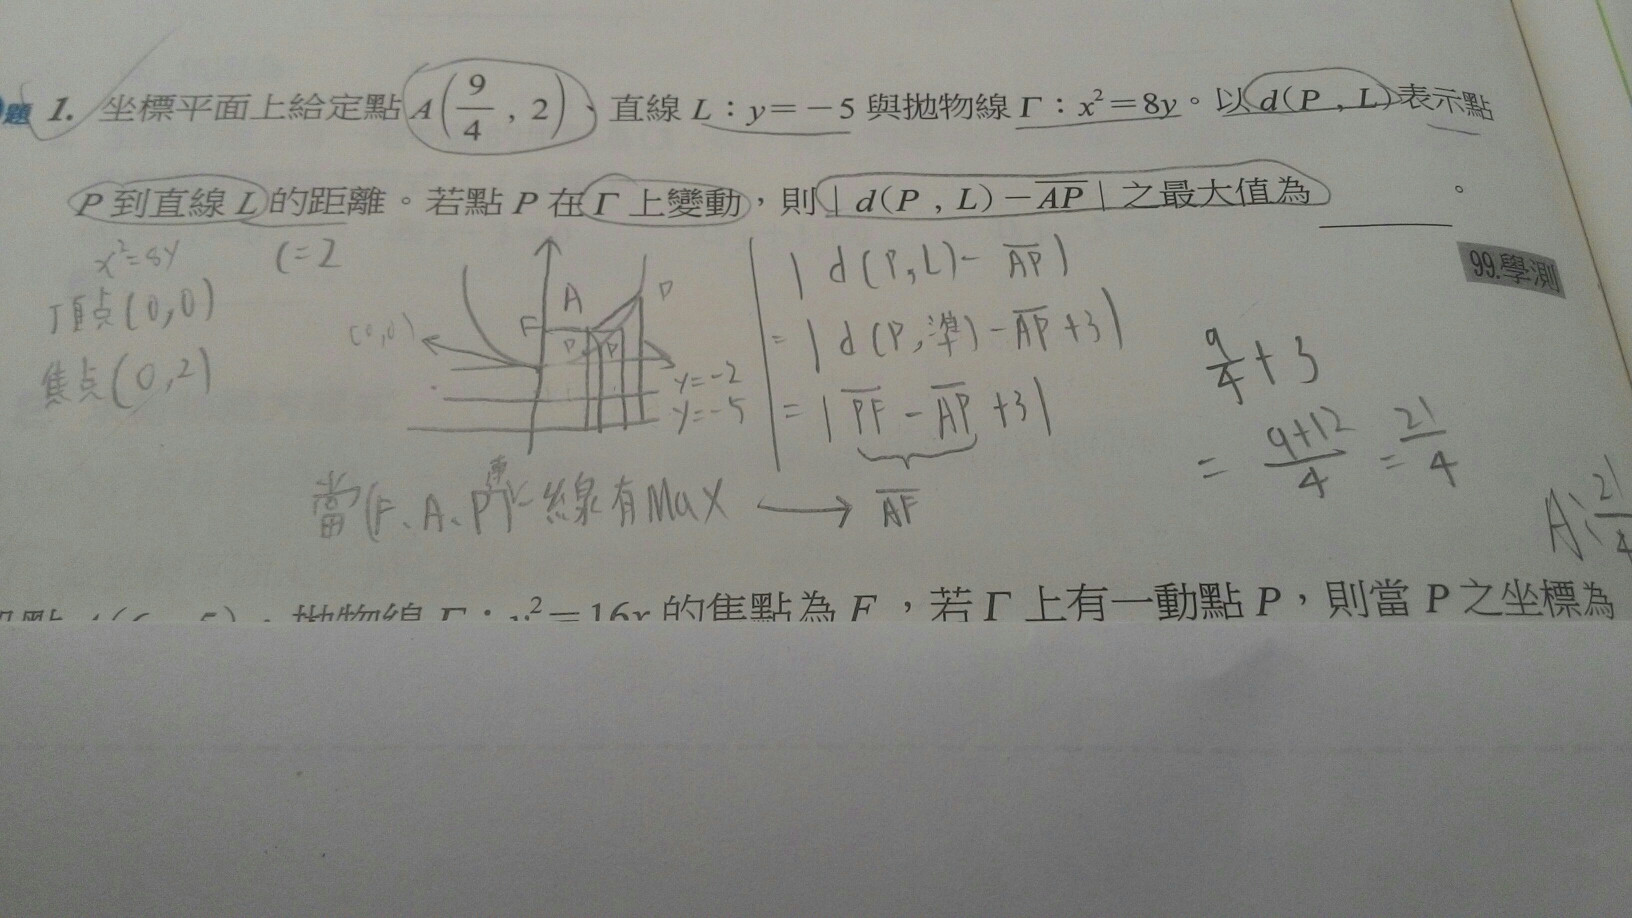 題 1. 坐標平面上給定點 A(9/4 , 2)、直線 L:y=-5 與拋物線 Γ:x²=8y。以 d(P , L) 表示點
P 到直線 L 的距離。若點 P 在 Γ 上變動,則 | d(P , L) - AP | 之最大值為 ______。
99.學測
x²=8y
C=2
頂点(0,0)
焦点(0,2)
(0,0)
F
A
P
P
P
y=-2
y=-5
| d(P,L)- AP |
= | d(P,準)- AP +3 |
= | PF - AP +3 |
9/4 + 3
= 9+12/4 = 21/4
當(F、A、P)共線有Max → AF
A: 21/4
拋物線 Γ:y²=16x 的焦點為 F,若 Γ 上有一動點 P,則當 P 之坐標為